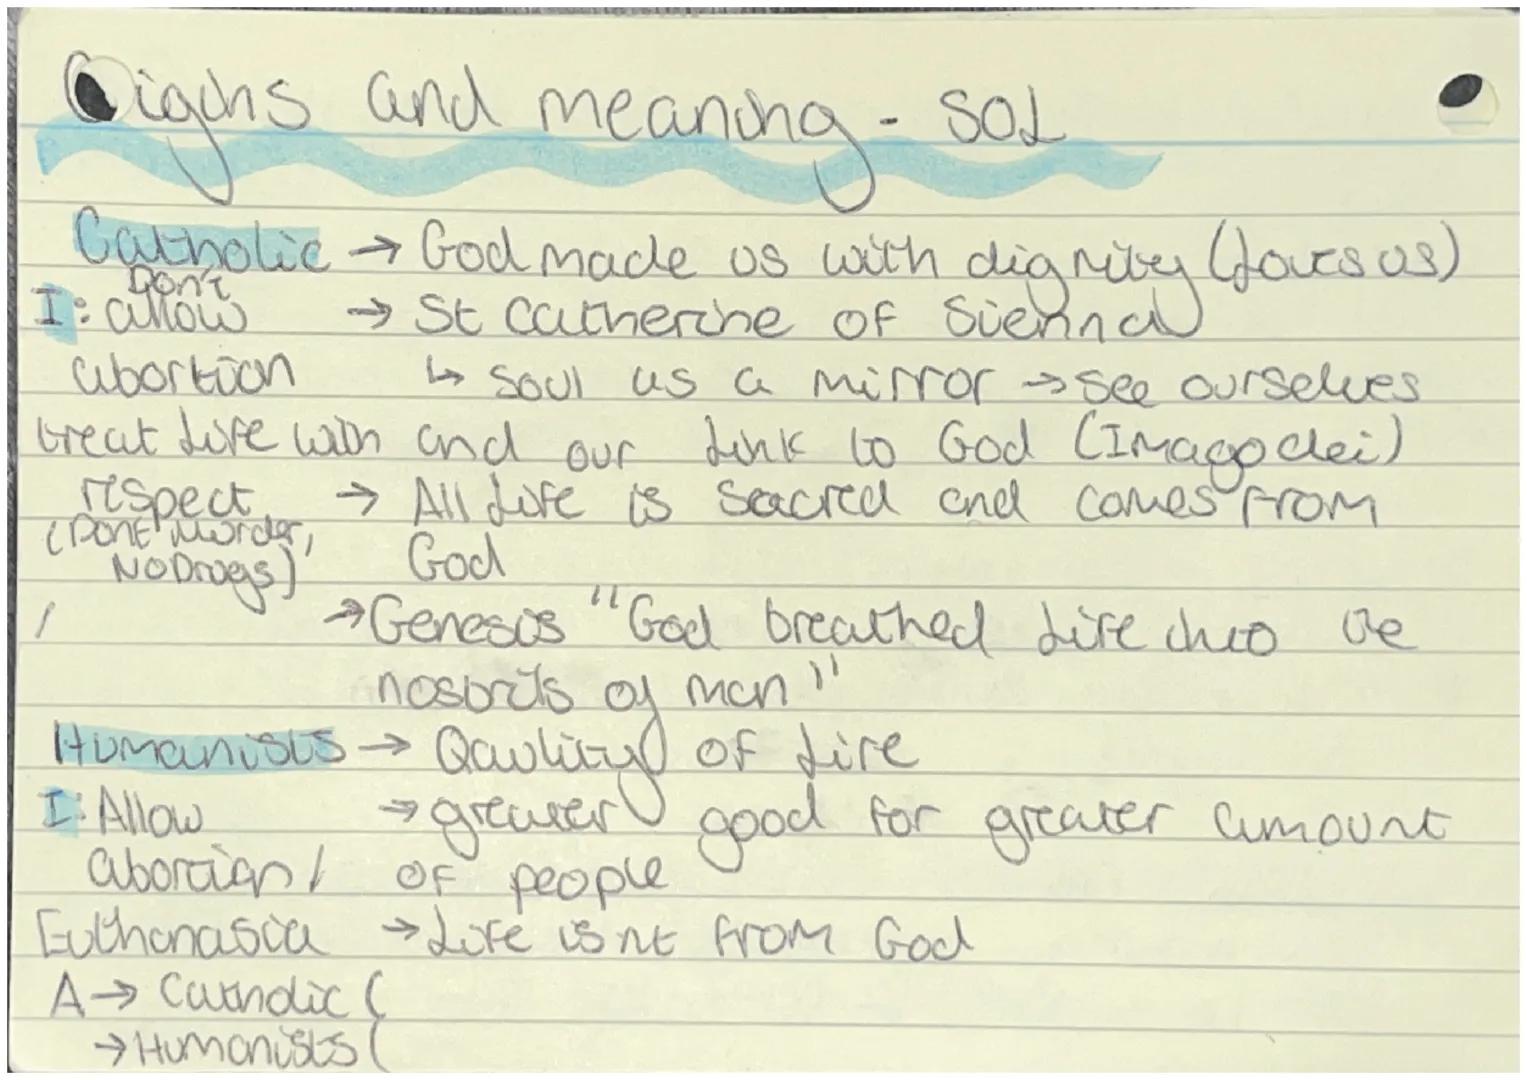 Origins and meaning - SOL
Catholic → God made us with dignity (Loves us)
Don't
I: allow → St Catherine of Sienna
abortion ↳ soul as a mirror → see ourselves
treat Life with and our Link to God (Imago dei)
respect → All Life is Sacred and comes from
(Dont Murder,
No Drugs) God
/ → Genesis "God breathed Life into the
nostrils of man"
Humanists → Qaulity of Life
I: Allow → greater good for greater amount
abortion/ of people
Euthanasia → Life isnt from God
A → Catholic (
→ Humanists (